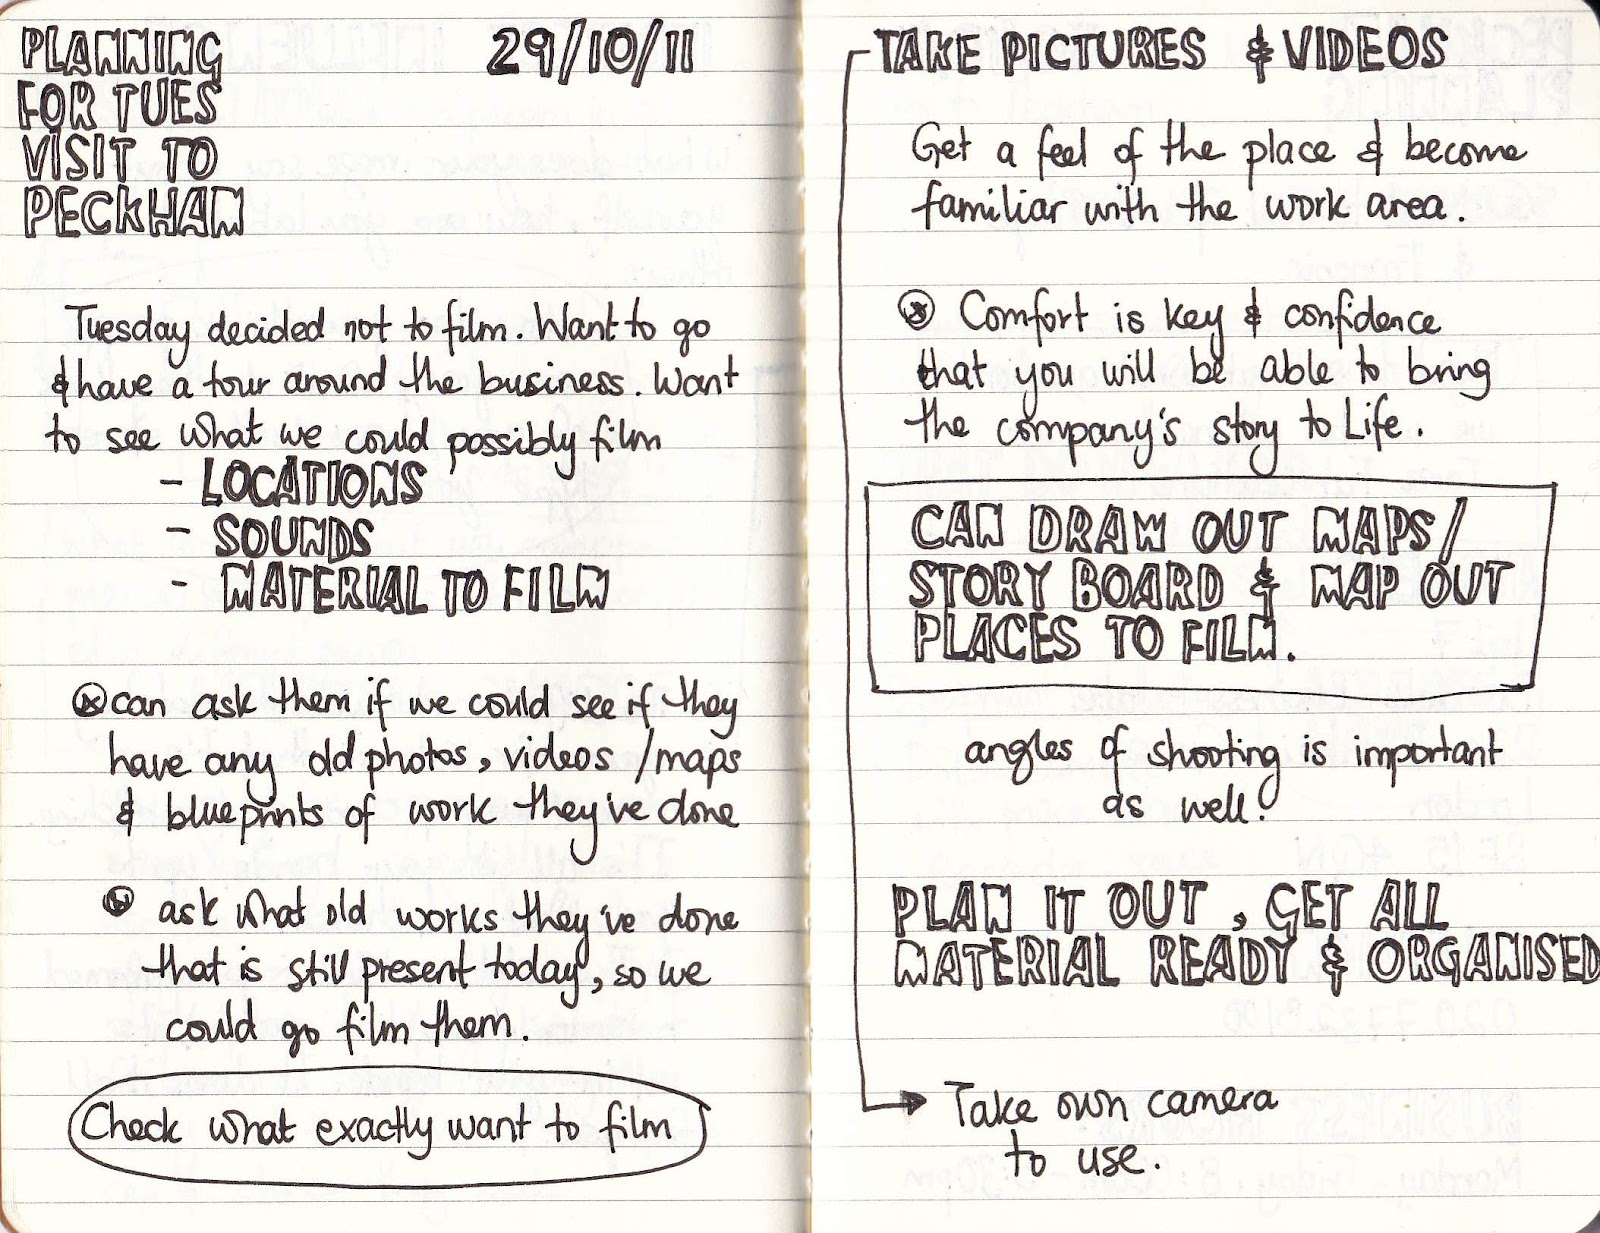 PLANNING
FOR TUES
VISIT TO
PECKHAM
29/10/11
Tuesday decided not to film. Want to go
& have a tour around the business. Want
to see what we could possibly film
- LOCATIONS
- SOUNDS
- MATERIAL TO FILM
can ask them if we could see if they
have any old photos, videos /maps
& blueprints of work they've done
ask what old works they've done
that is still present today, so we
could go film them.
Check what exactly want to film
TAKE PICTURES & VIDEOS
Get a feel of the place & become
familiar with the work area.
Comfort is key & confidence
that you will be able to bring
the company's story to Life.
CAN DRAW OUT MAPS/
STORY BOARD & MAP OUT
PLACES TO FILM.
angles of shooting is important
as well!
PLAN IT OUT, GET ALL
MATERIAL READY & ORGANISED
Take own camera
to use.